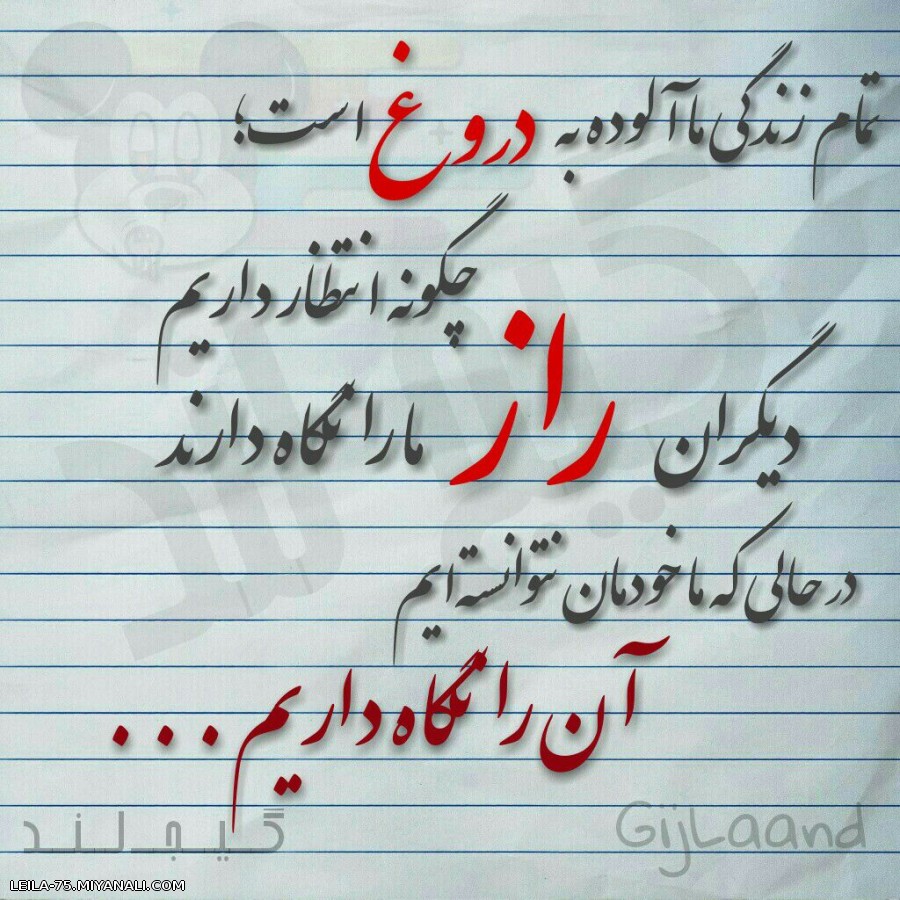 تمام زندگی ما آلوده به دروغ است؛
چگونه انتظار داریم
دیگران راز ما را نگاه دارند
در حالی که ما خودمان نتوانسته ایم
آن را نگاه داریم ...
گیج لند
GijLaand
LEILA-75.MIYANALI.COM